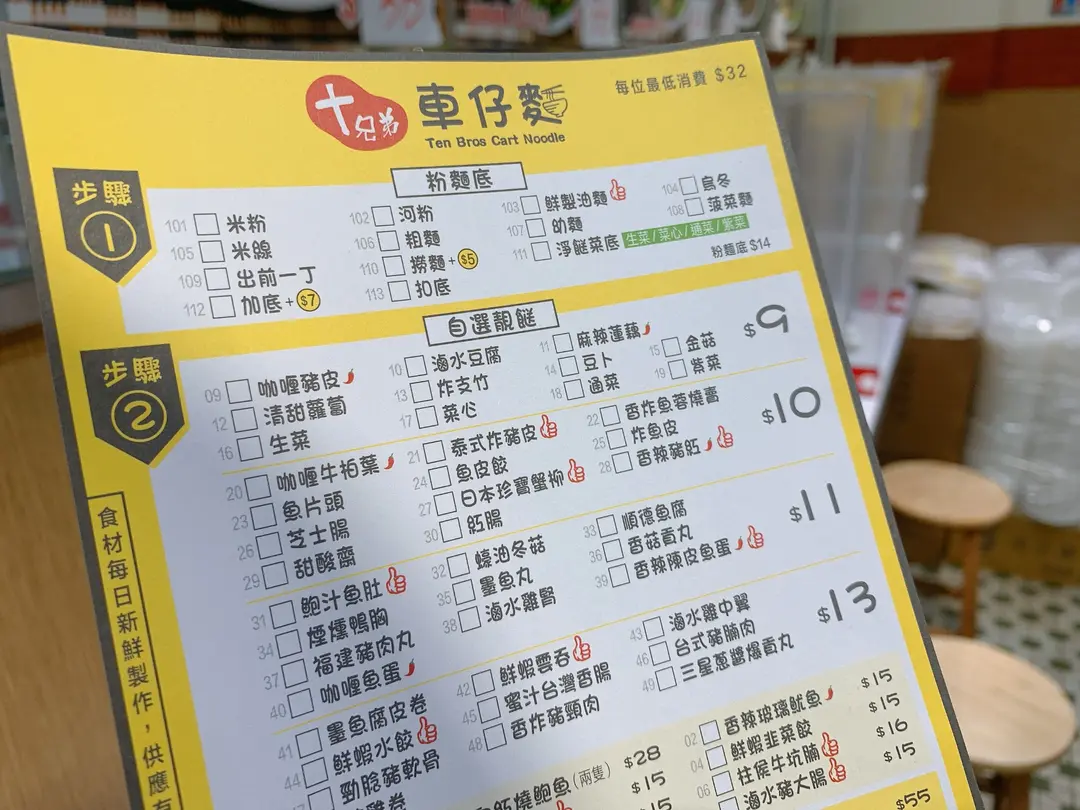 十兄弟 車仔麵
Ten Bros Cart Noodle
每位最低消費 $32
步驟 1
粉麵底
101 米粉 102 河粉 103 鮮製油麵 104 烏冬
105 米線 106 粗麵 107 幼麵 108 菠菜麵
109 出前一丁 110 撈麵+$5 111 淨餸菜底 生菜/菜心/通菜/紫菜
112 加底+$7 113 扣底 粉麵底 $14
步驟 2
自選靚餸
$9
09 咖喱豬皮 10 滷水豆腐 11 麻辣蓮藕
12 清甜蘿蔔 13 炸支竹 14 豆卜 15 金菇
16 生菜 17 菜心 18 通菜 19 紫菜
$10
20 咖喱牛柏葉 21 泰式炸豬皮 22 香炸魚蓉燒賣
23 魚片頭 24 魚皮餃 25 炸魚皮
26 芝士腸 27 日本珍寶蟹柳 28 香辣豬紅
29 甜酸齋 30 紅腸
$11
31 鮑汁魚肚 32 蠔油冬菇 33 順德魚腐
34 煙燻鴨胸 35 墨魚丸 36 香菇貢丸
37 福建豬肉丸 38 滷水雞腎 39 香辣陳皮魚蛋
40 咖喱魚蛋
$13
41 墨魚腐皮卷 42 鮮蝦雲吞 43 滷水雞中翼
44 鮮蝦水餃 45 蜜汁台灣香腸 46 台式豬腩肉
47 勁脆豬軟骨 48 香炸豬頸肉 49 三星蔥醬爆貢丸
雞卷
紅燒鮑魚(兩隻) $28
$15
$15
02 香辣玻璃魷魚 $15
04 鮮蝦韭菜餃 $15
06 柱侯牛坑腩 $16
滷水豬大腸 $15
$55
食材每日新鮮製作,供應有